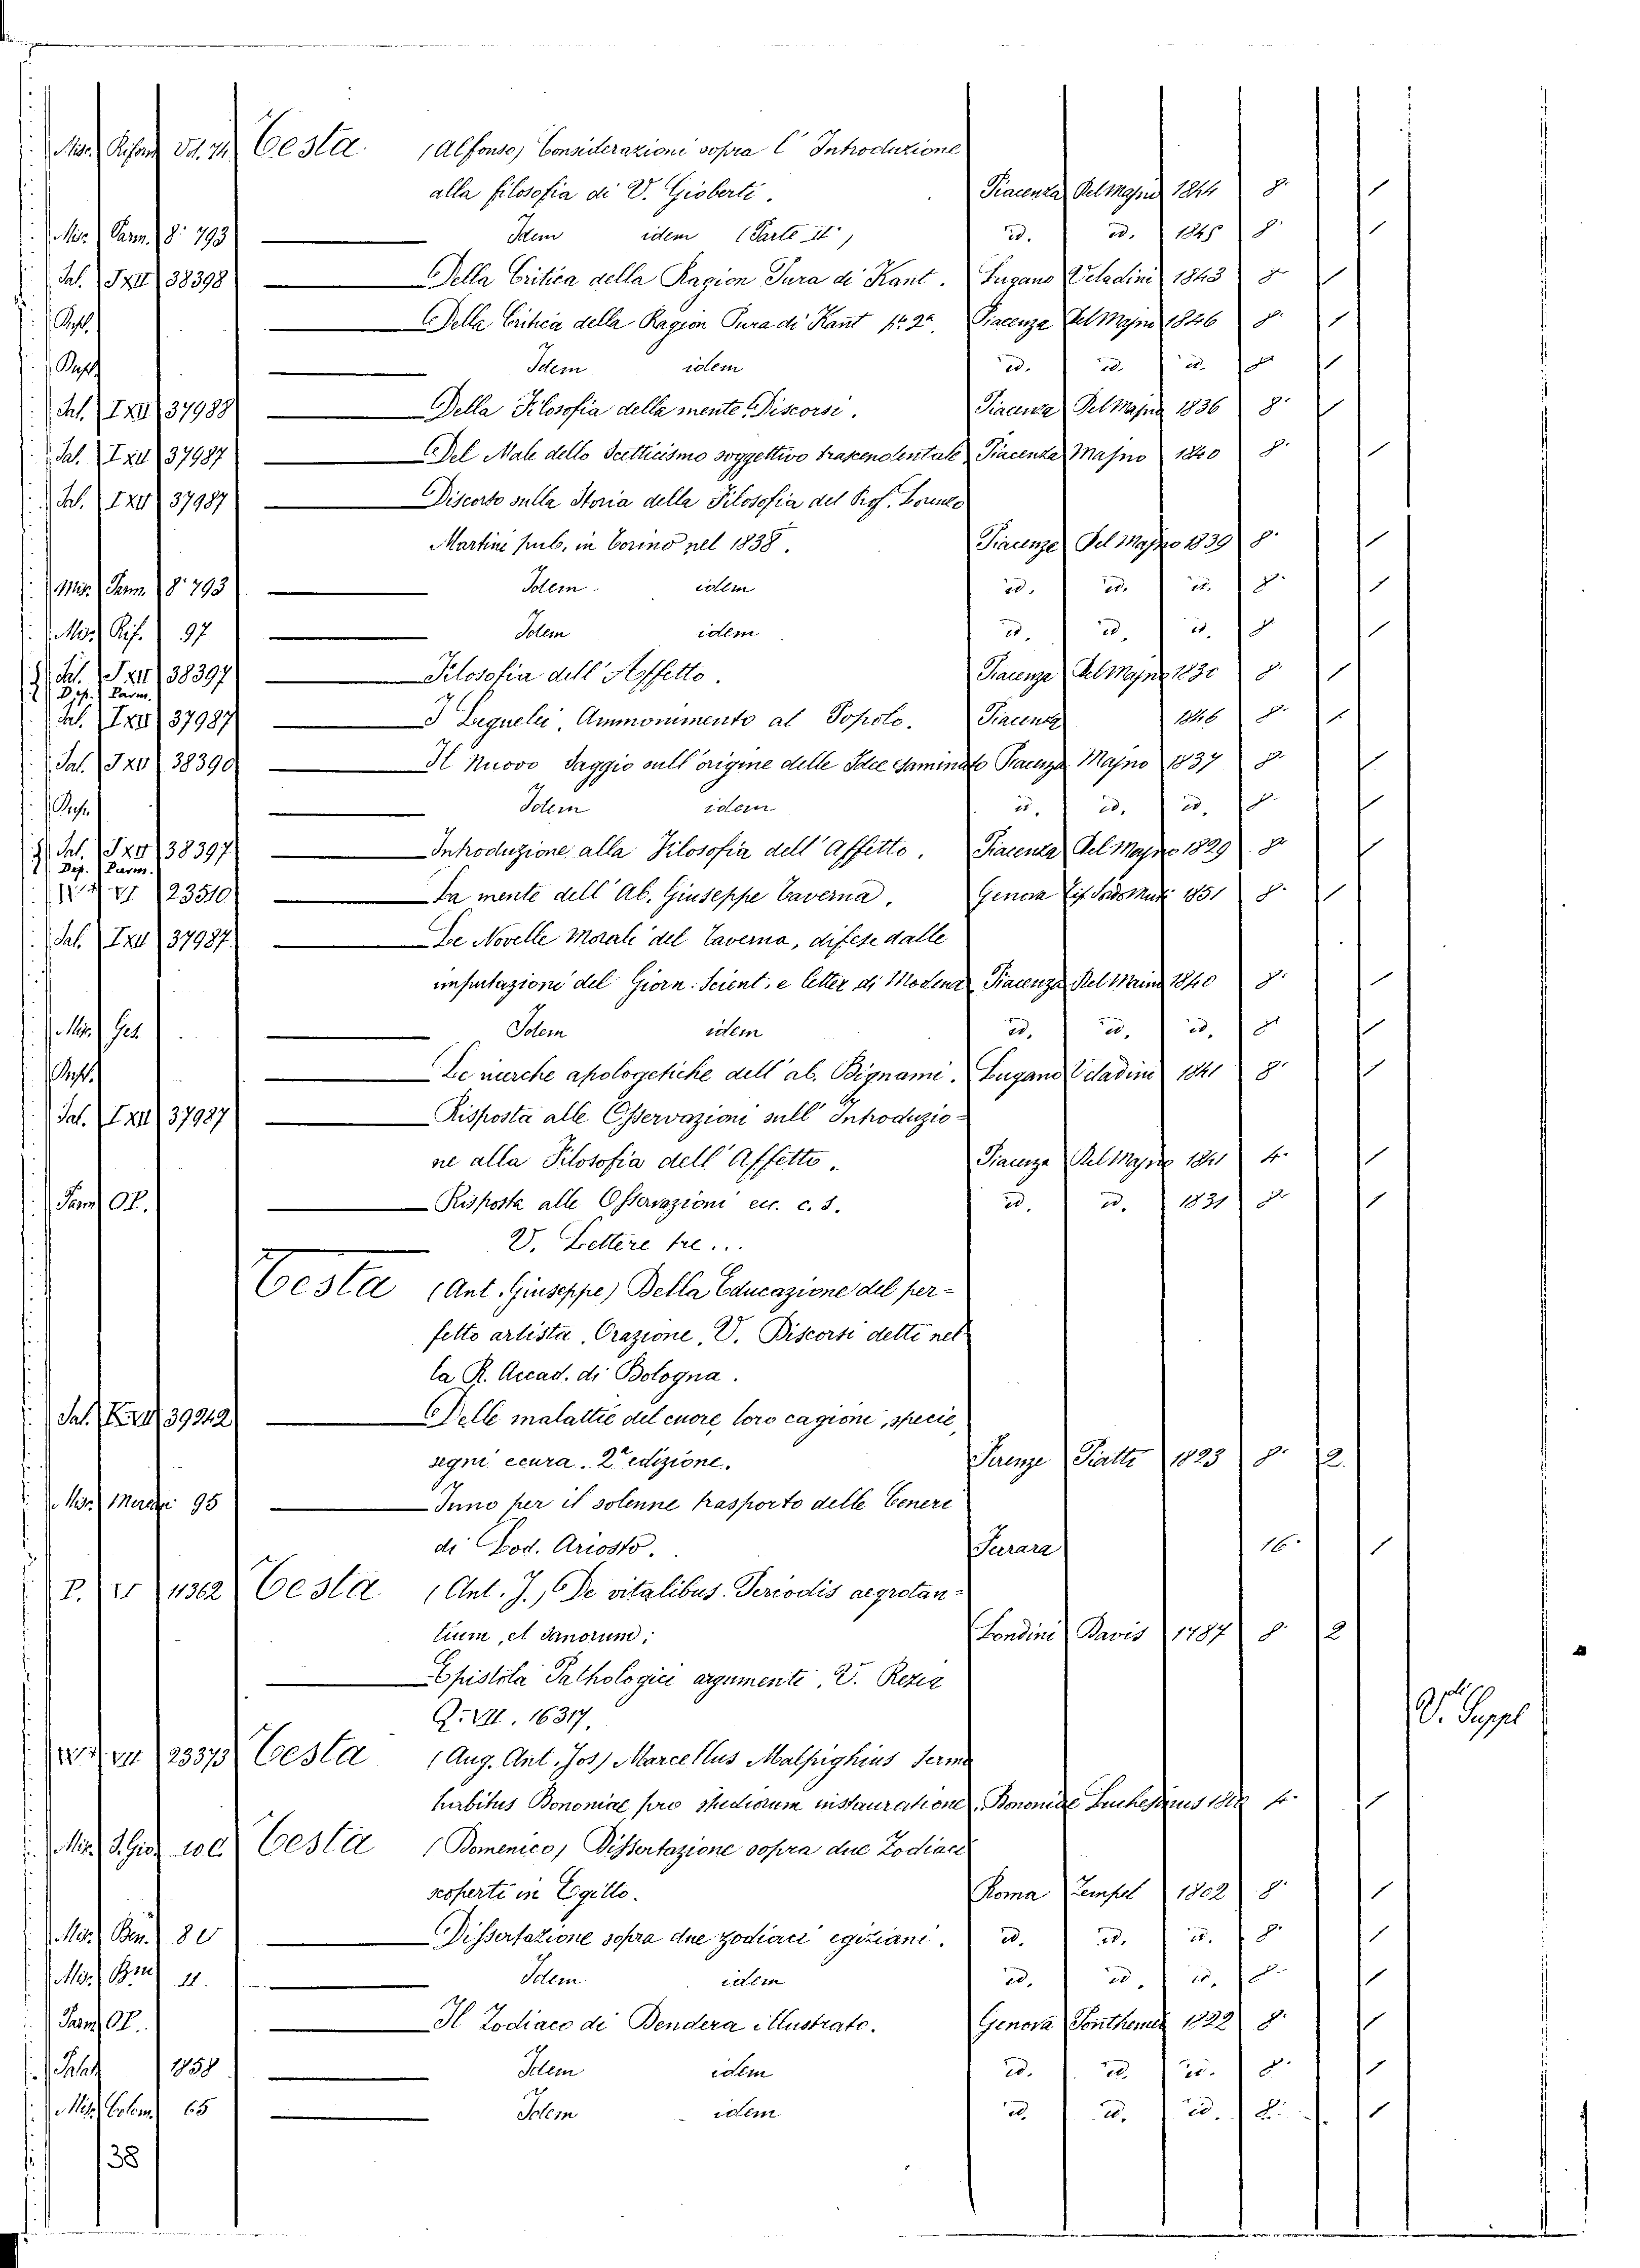 Misc. Riform Vol. 71 Testa (Alfonso) Considerazioni sopra l' Introduzione
alla filosofia di V. Gioberti. Piacenza Del Majno 1844 8° 1
Misc. Parm. 8° 793 Idem idem (Parte II) id. id. 1845 8° 1
Sal. IXII 38398 Della Critica della Ragion Pura di Kant. Lugano Veladini 1843 8° 1
Della Critica della Ragion Pura di Kant pte 2a. Piacenza Del Majno 1846 8° 1
Idem idem id. id. id. 8° 1
Sal. IXII 37988 Della Filosofia della mente, Discorsi. Piacenza Del Majno 1836 8° 1
Sal. IXII 37987 Del Male dello Scetticismo soggettivo trascendentale Piacenza Majno 1840 8° 1
Sal. IXII 37987 Discorso sulla Storia della Filosofia del Prof.
Martini pub. in Torino nel 1838. Piacenza Del Majno 1839 8° 1
Misc. Parm. 8° 793 Idem idem id. id. id. 8° 1
Misc. Rif. 97 Idem idem id. id. id. 8° 1
Sal. IXII 38397 Filosofia dell' Affetto. Piacenza Del Majno 1830 8° 1
2) Dep. Parm.
Sal. IXII 37987 I Legulei, Ammonimento al Popolo. Piacenza 1846 8° 1
Sal. IXII 38390 Il Nuovo Saggio sull' origine delle Idee esaminato Piacenza Majno 1837 8° 1
Idem idem id. id. id. 8° 1
Sal. IXII 38397 Introduzione alla Filosofia dell' Affetto. Piacenza Del Majno 1829 8° 1
2) Dep. Parm.
23510 La mente dell' Ab. Giuseppe Taverna. Genova Tip. Sordo Muti 1851 8° 1
Sal. IXII 37987 Le Novelle Morali del Taverna, difese dalle
imputazioni del Giorn. Scient. e letter. di Modena Piacenza Del Maino 1840 8° 1
Misc. Ges. Idem idem id. id. id. 8° 1
Le nurche apologetiche dell' ab. Bignami. Lugano Veladini 1841 8° 1
Sal. IXII 37987 Risposta alle Osservazioni sull' Introduzio-
ne alla Filosofia dell' Affetto. Piacenza Del Majno 1841 4° 1
Parm. Op. Risposta alle Osservazioni ecc. c. s. id. id. 1831 8° 1
V. Lettere tre...
Testa (Ant. Giuseppe) Della Educazione del per-
fetto artista, Orazione, V. Discorsi detti nel
la R. Accad. di Bologna.
Sal. 39242 Delle malattie del cuore, loro cagioni, specie,
segni e cura. 2a edizione. Firenze Piatti 1823 8° 2.
Misc. 95 Inno per il solenne trasporto delle Ceneri
di Lod. Ariosto. Ferrara 16° 1
P. VI 11362 Testa (Ant. J.) De vitalibus Periodis aegrotan-
tium, et sanorum. Londini Davis 1787 8° 2
Epistola Pathologici argumenti. V. Rezia
Q. VII. 16317.
V. Suppl
VII 23373 Testa (Aug. Ant. Jos) Marcellus Malpighius Sermo
habitus Bononiae pro studiorum instauratione. Bononiae Luchesinus 4° 1
Misc. S. Gio. Testa (Domenico) Dissertazione sopra due Zodiaci
scoperti in Egitto. Roma Zempel 1802 8° 1
Misc. Ben. 80 Dissertazione sopra due zodiaci egiziani. id. id. id. 8° 1
Misc. Ben. 11. Idem idem id. id. id. 8° 1
Parm. Op. Il Zodiaco di Dendera illustrato. Genova Ponthenier 1822 8° 1
Palat. 1858 Idem idem id. id. id. 8° 1
Misc. Colom. 65 Idem idem id. id. id. 8. 1
38